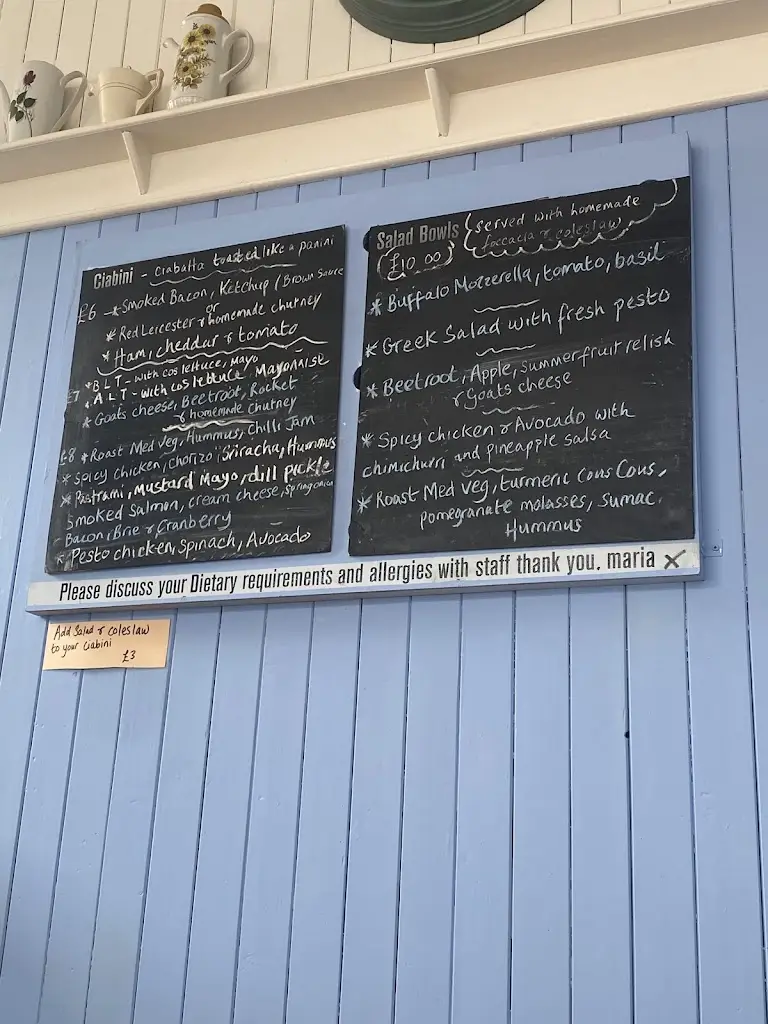 Ciabini - ciabatta toasted like a panini
£6 * Smoked Bacon, Ketchup / Brown Sauce
or
* Red Leicester & homemade chutney
* Ham, cheddar & tomato
£7 * BLT - with cos lettuce, Mayo
* ALT - with cos lettuce, Mayonaise
* Goats cheese, Beetroot, Rocket
& homemade chutney
£8 * Roast Med Veg, Hummus, Chilli Jam
* Spicy chicken, chorizo, Sriracha, Hummus
* Pastrami, Mustard Mayo, dill pickle
Smoked Salmon, cream cheese, Spring onion
Bacon, Brie & Cranberry
* Pesto chicken, Spinach, Avocado
Salad Bowls
£10.00
served with homemade
foccacia & coleslaw
* Buffalo Mozzerella, tomato, basil
* Greek Salad with fresh pesto
* Beetroot, Apple, summerfruit relish
& Goats cheese
* Spicy chicken & Avocado with
chimichurri and pineapple salsa
* Roast Med Veg, turmeric Cous Cous,
pomegranate molasses, sumac.
Hummus
Please discuss your Dietary requirements and allergies with staff thank you. maria X
Add Salad & coleslaw
to your Ciabini
£3